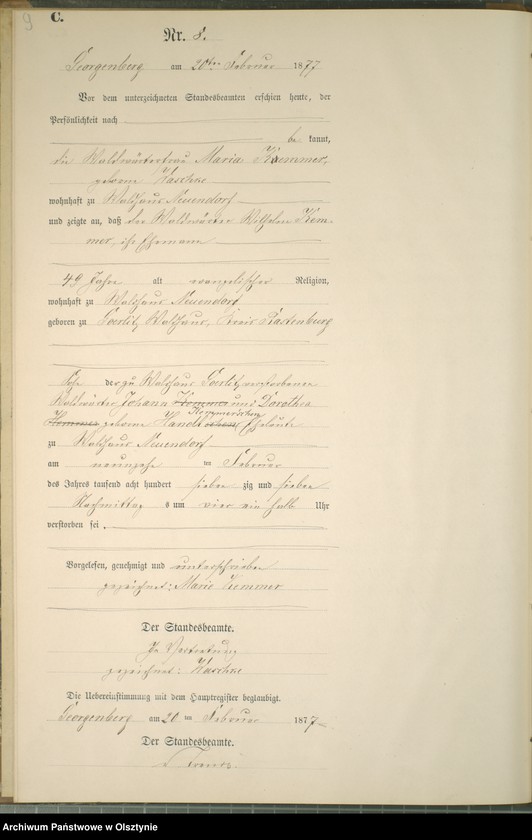 9
C.
Nr. 8.
Georgenberg am 20ten Februar 1877
Vor dem unterzeichneten Standesbeamten erschien heute, der
Persönlichkeit nach
be kannt,
die Waldwärterfrau Maria Kemmer,
geborne Waschke
wohnhaft zu Waldhaus Neuendorf
und zeigte an, daß der Waldwärter Wilhelm Kem-
mer, ihr Ehemann
49 Jahre alt evangelischer Religion,
wohnhaft zu Waldhaus Neuendorf
geboren zu Goerlitz Waldhaus, Kreis Rastenburg
Sohn der zu Waldhaus Goerlitz verstorbenen
Waldwärter Johann Kemmer und Dorothea
Kemmerschen
geborne Eheleute
zu Waldhaus Neuendorf
am neunzehn ten Februar
des Jahres tausend acht hundert sieben zig und sieben
Nachmittag s um vier ein halb Uhr
verstorben sei.
Vorgelesen, genehmigt und unterschrieben
gezeichnet: Marie Kemmer
Der Standesbeamte.
In Vertretung
gezeichnet: Waschke
Die Uebereinstimmung mit dem Hauptregister beglaubigt.
Georgenberg am 20 ten Februar 1877
Der Standesbeamte.
Archiwum Państwowe w Olsztynie